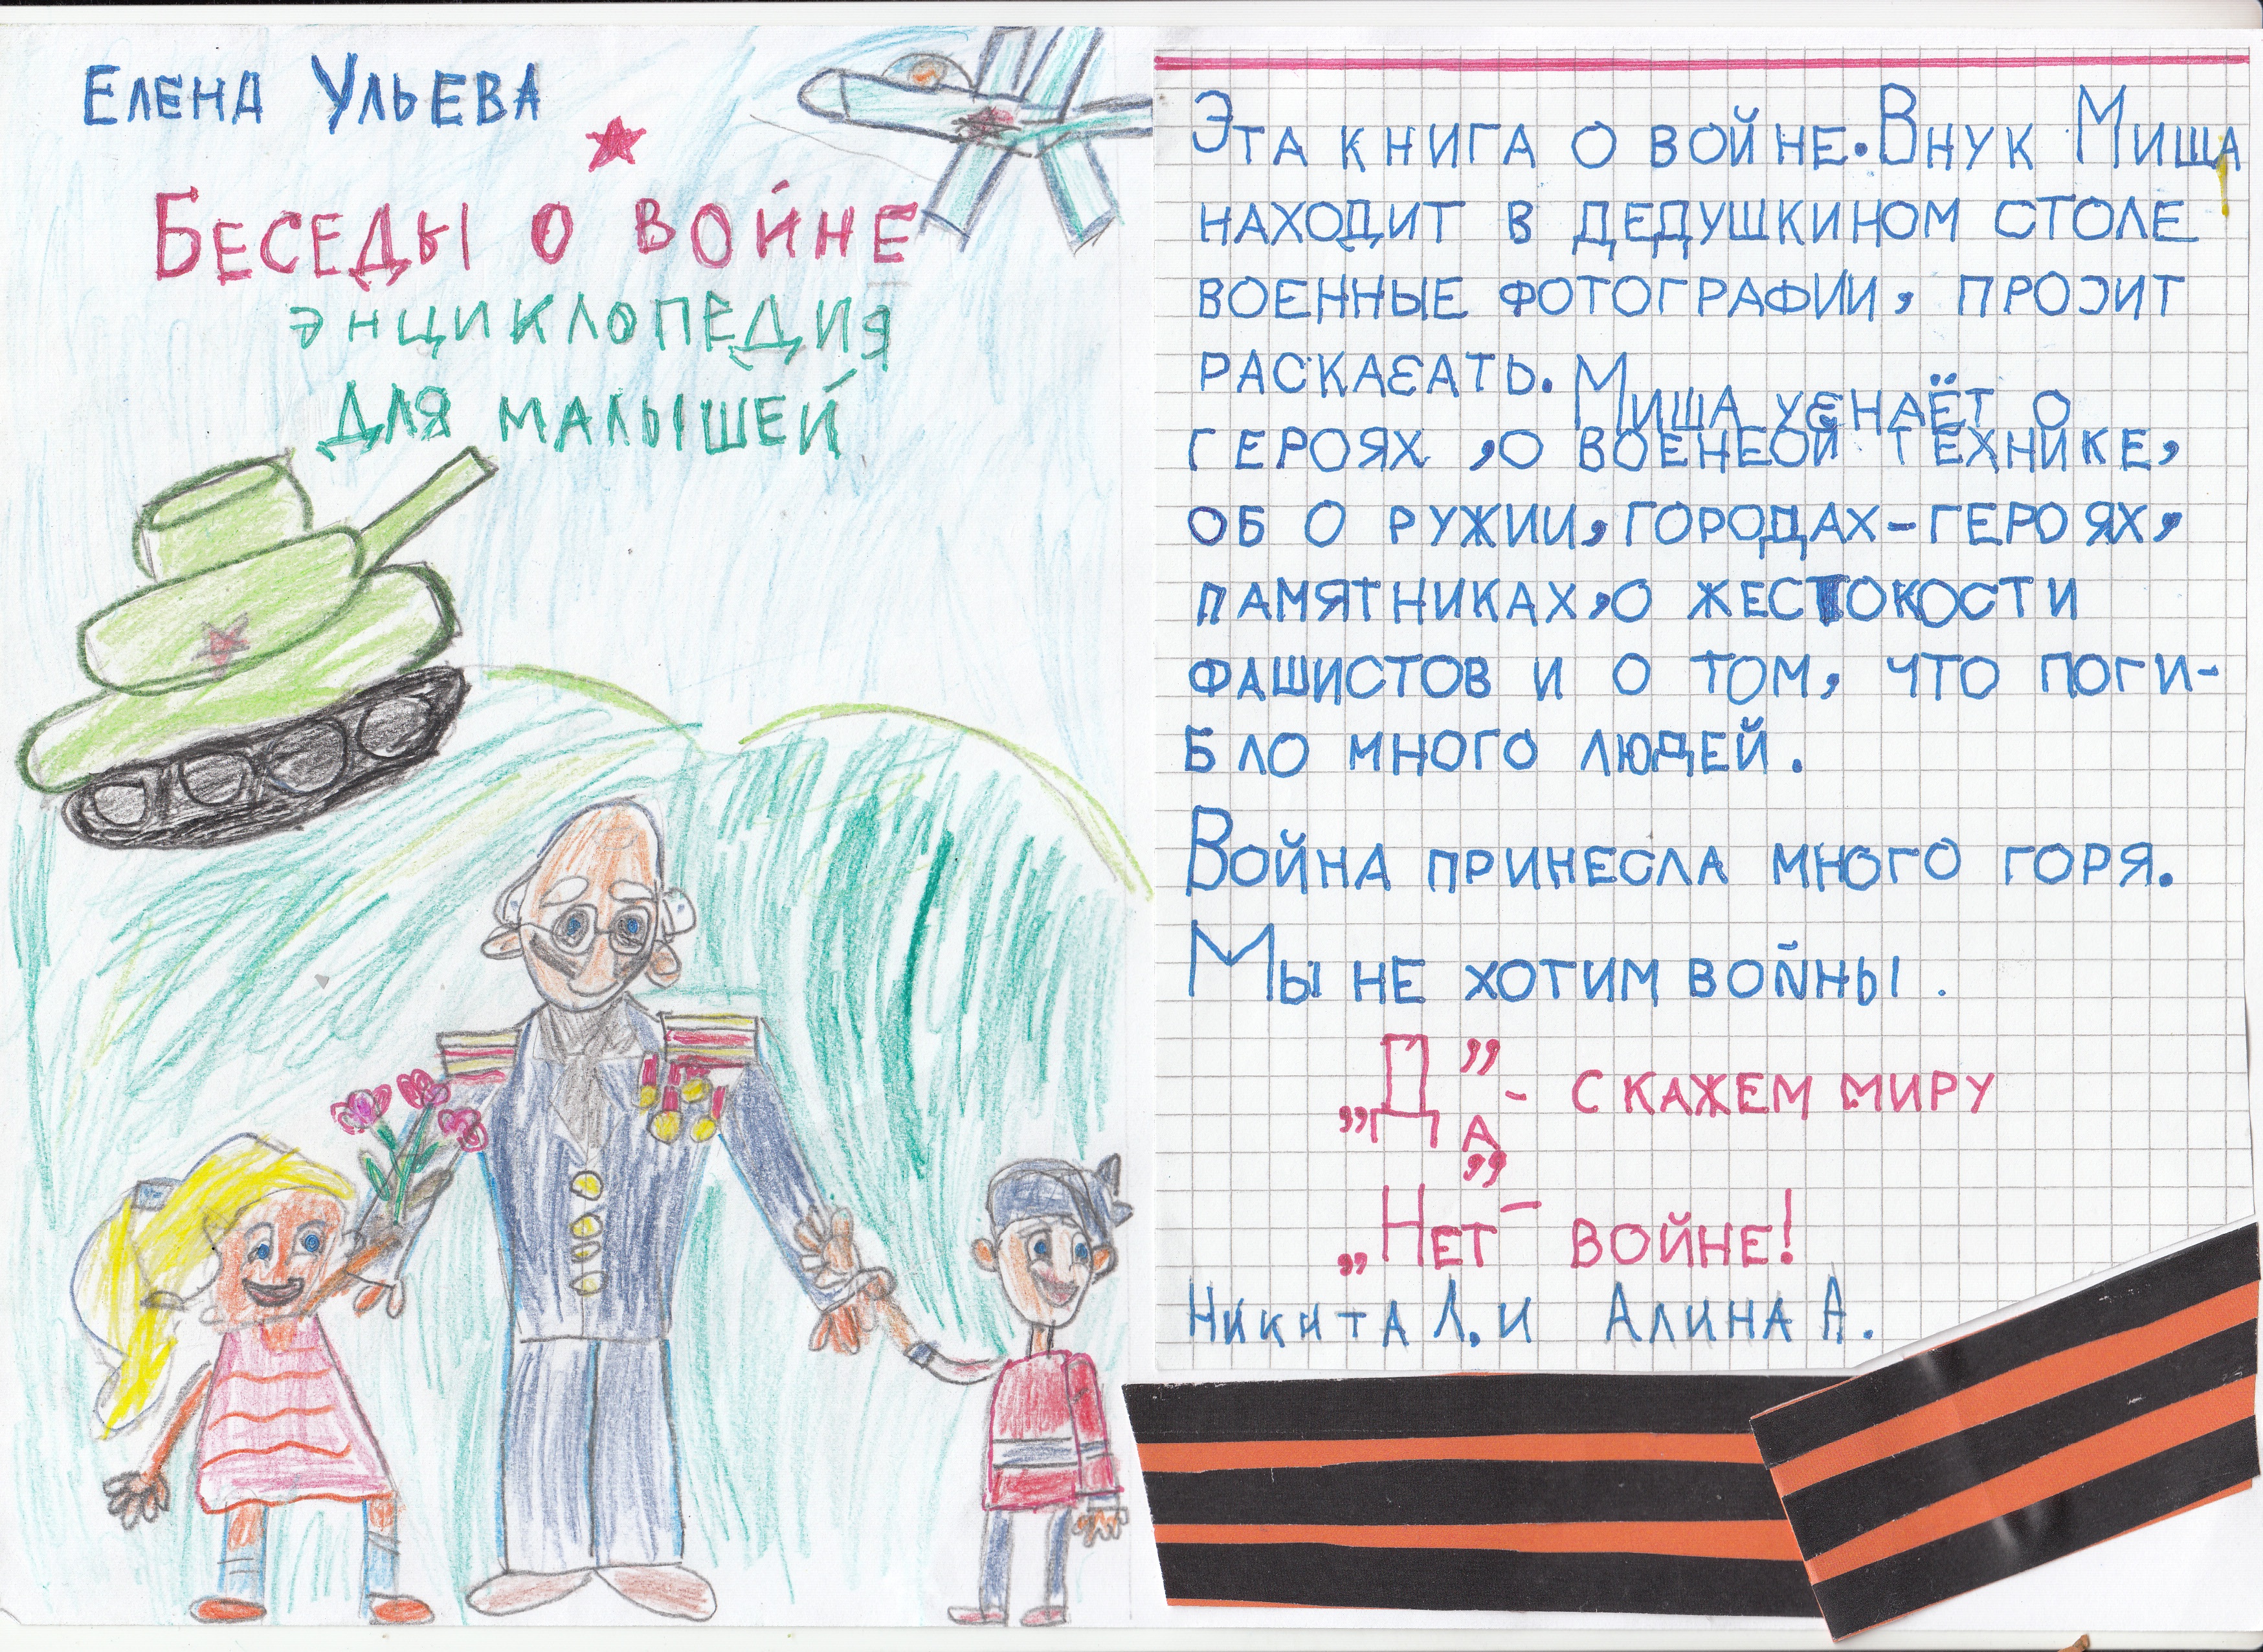 Елена Ульева
Беседы о войне
энциклопедия
для малышей
Эта книга о войне. Внук Миша
находит в дедушкином столе
военные фотографии, просит
раскаєать. Миша уєнаёт о
героях, о военеой технике,
об о ружии, городах-героях,
памятниках, о жестокости
фашистов и о том, что поги-
бло много людей.
Война принесла много горя.
Мы не хотим войны.
„Да” - скажем миру
„Нет” - войне!
Никита Л. и Алина А.